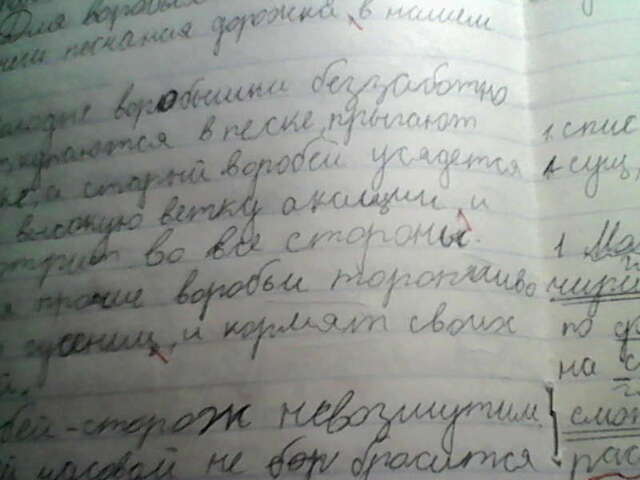 Для воробьев
песчаная дорожка, в нашем
воробышки беззаботно
купаются в песке, прыгают
а старый воробей усядется
высокую ветку акации и
во все стороны.
прочие воробьи торопливо
гусениц, и кормят своих
сторож невозмутим.
часовой не бросится
1. спис
сущ,
1 Мол
чири
по
на
смот
рас